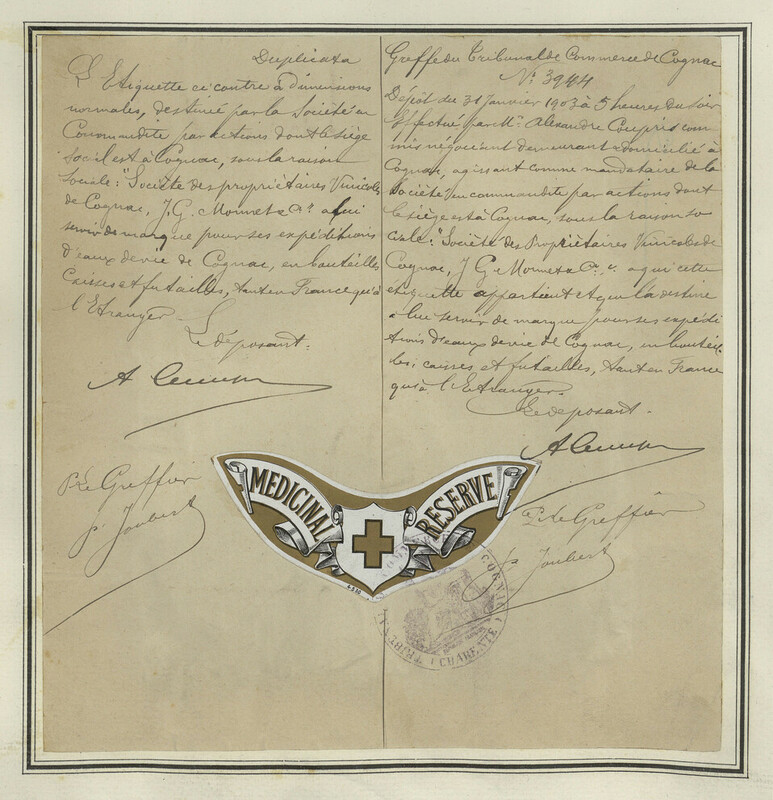 Duplicata
L'Etiquette ci contre à dimensions
normales, destinée par la Société en
Commandite par actions dont le siège
social est à Cognac, sous la raison
sociale: "Société des propriétaires Vinicoles
de Cognac, J. G. Monnet & Cie. a lui
servir de marque pour ses expéditions
d'eaux de vie de Cognac, en bouteilles,
caisses et futailles, tant en France qu'à
l'Etranger
Le déposant.
Pr Le Greffier
p. Joubert
Greffe du Tribunal de Commerce de Cognac
N° 3944
Dépôt du 31 Janvier 1903 à 5 heures du soir
Effectué par Mr. Alexandre Couprie com
mis négociant demeurant & domicilié à
Cognac, agissant comme mandataire de la
Société en commandite par actions dont
le siège est à Cognac, sous la raison so
ciale: "Société des Propriétaires Vinicoles de
Cognac, J G Monnet & Cie. a qui cette
etiquette appartient et qui la destine
à lui servir de marque pour ses expédi
tions d'eaux de vie de Cognac, en bouteil-
les, caisses et futailles, tant en France
qu'à l'Etranger.
Le déposant.
Pr le Greffier
p. Joubert
MEDICINAL RESERVE
COGNAC
CHARENTE